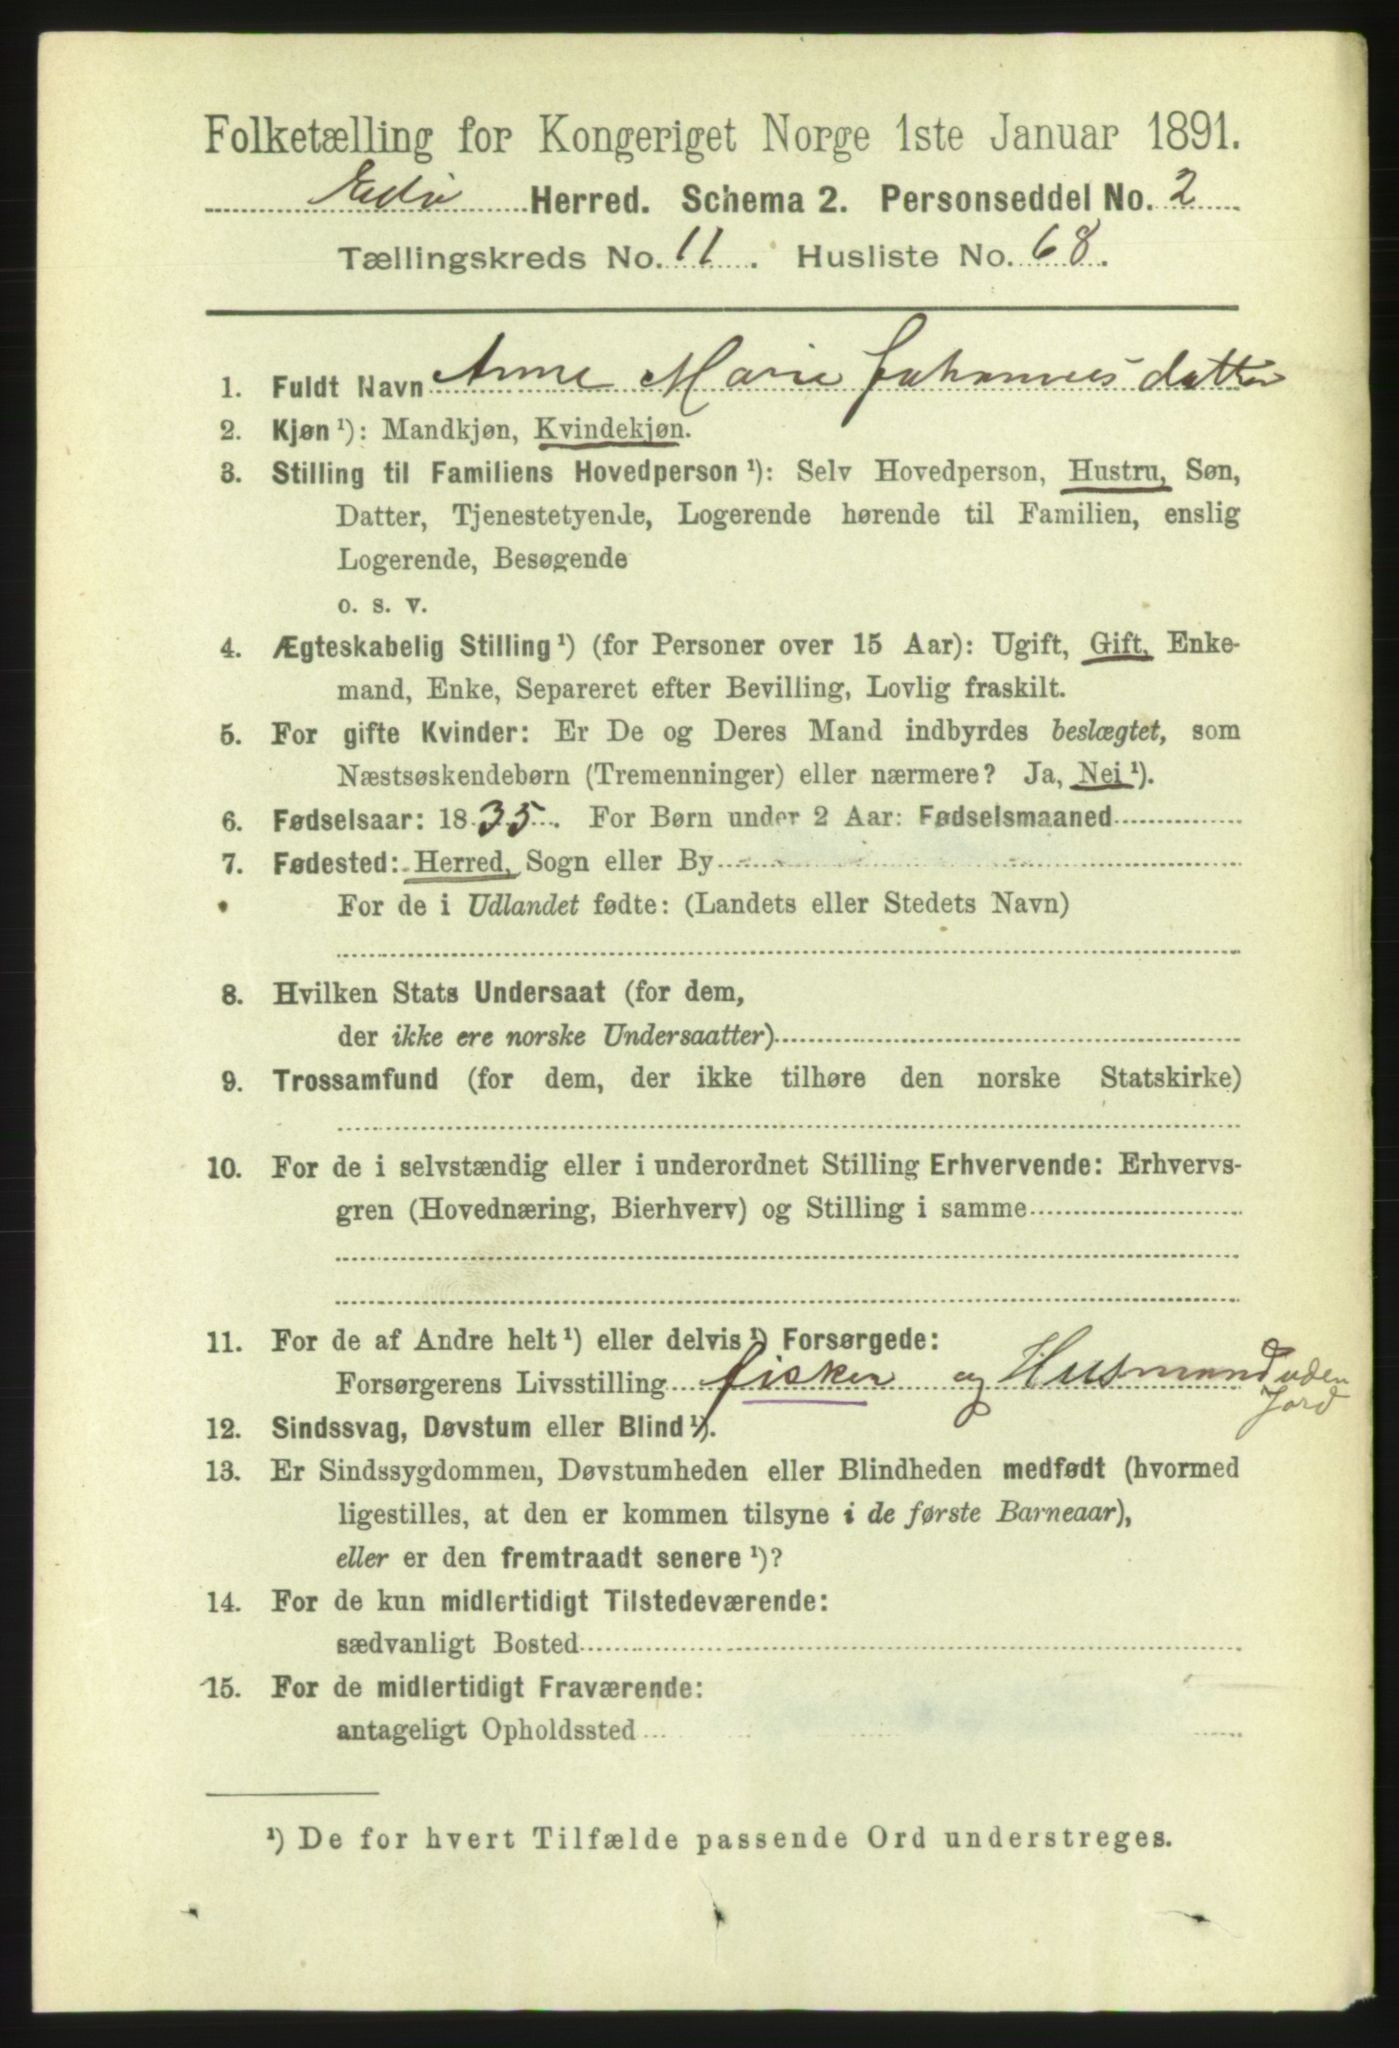 Folketælling for Kongeriget Norge 1ste Januar 1891.
Edø Herred. Schema 2. Personseddel No. 2
Tællingskreds No. 11. Husliste No. 68.
1. Fuldt Navn Anne Marie Johannesdatter
2. Kjøn ¹): Mandkjøn, Kvindekjøn.
3. Stilling til Familiens Hovedperson ¹): Selv Hovedperson, Hustru, Søn,
Datter, Tjenestetyende, Logerende hørende til Familien, enslig
Logerende, Besøgende
o. s. v.
4. Ægteskabelig Stilling ¹) (for Personer over 15 Aar): Ugift, Gift, Enke-
mand, Enke, Separeret efter Bevilling, Lovlig fraskilt.
5. For gifte Kvinder: Er De og Deres Mand indbyrdes beslægtet, som
Næstsøskendebørn (Tremenninger) eller nærmere? Ja, Nei ¹).
6. Fødselsaar: 1835. For Børn under 2 Aar: Fødselsmaaned
7. Fødested: Herred, Sogn eller By
For de i Udlandet fødte: (Landets eller Stedets Navn)
8. Hvilken Stats Undersaat (for dem,
der ikke ere norske Undersaatter)
9. Trossamfund (for dem, der ikke tilhøre den norske Statskirke)
10. For de i selvstændig eller i underordnet Stilling Erhvervende: Erhvervs-
gren (Hovednæring, Bierhverv) og Stilling i samme
11. For de af Andre helt ¹) eller delvis ¹) Forsørgede:
Forsørgerens Livsstilling fisker og Husmand uden
Jord
12. Sindssvag, Døvstum eller Blind ¹).
13. Er Sindssygdommen, Døvstumheden eller Blindheden medfødt (hvormed
ligestilles, at den er kommen tilsyne i de første Barneaar),
eller er den fremtraadt senere ¹)?
14. For de kun midlertidigt Tilstedeværende:
sædvanligt Bosted
15. For de midlertidigt Fraværende:
antageligt Opholdssted
¹) De for hvert Tilfælde passende Ord understreges.